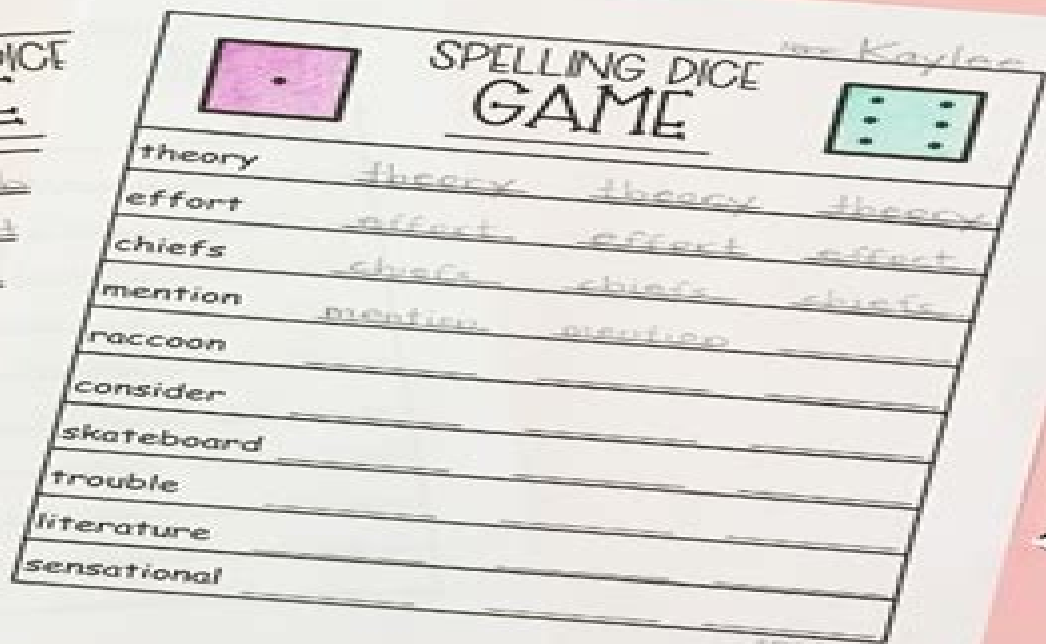 Kaylee
SPELLING DICE
GAME
theory theory theory theory
effort effort effort effort
chiefs chiefs chiefs chiefs
mention mention mention
raccoon
consider
skateboard
trouble
literature
sensational
DICE